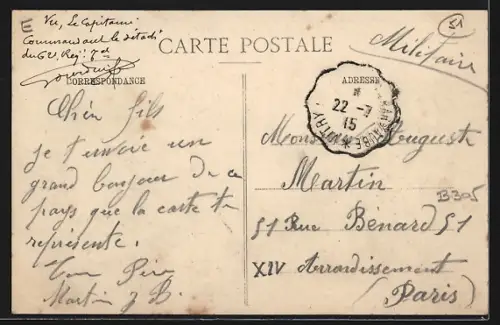 Vu, Le Capitaine
Commandant le détach
du
CARTE POSTALE
Militaire
51
CORRESPONDANCE
ADRESSE
22 -
15
Cher fils
je t'envoie un
grand bonjour de ce
pays que la carte te
représente.
Ton Père
Martin J B.
Monsieur Auguste
Martin
B305
51 Rue Bénard 51
XIV Arrondissement
(Paris)